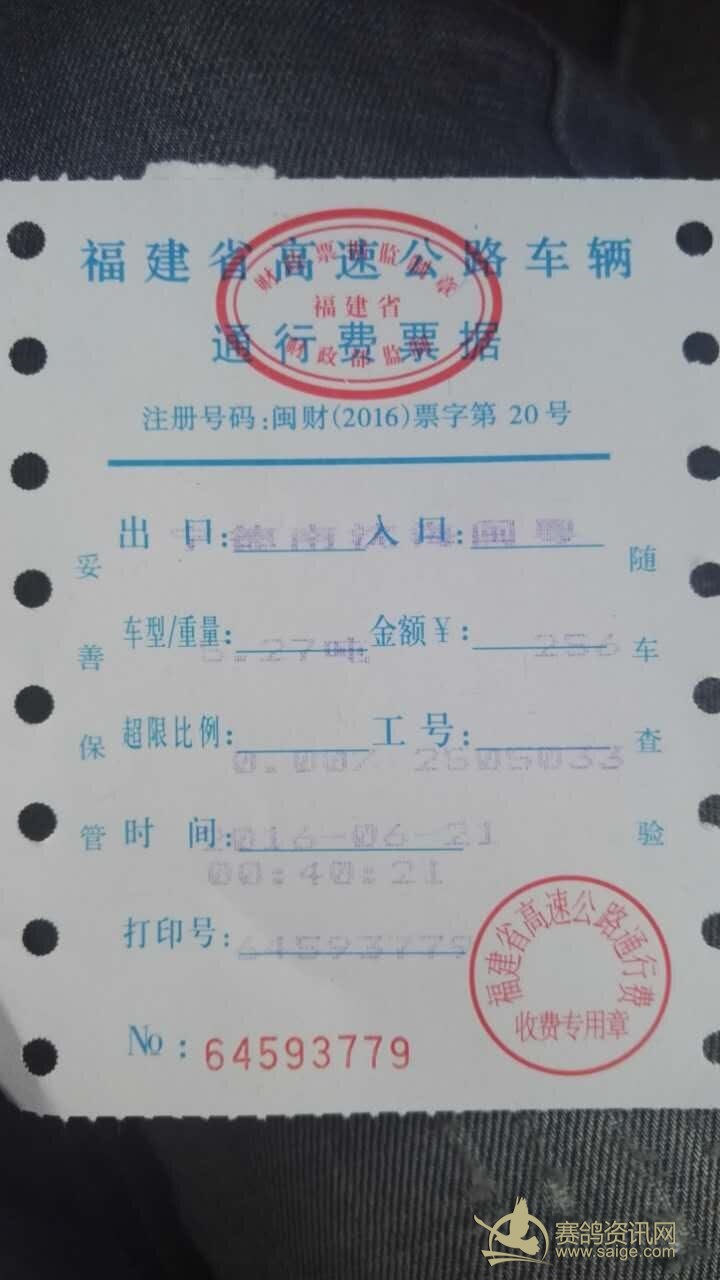 福建省高速公路车辆
通行费票据
福建省
注册号码:闽财(2016)票字第 20号
出 口:宁德南 入 口:
车型/重量: 5.27吨 金额￥: 256
超限比例: 0.00% 工号: 2505033
时 间: 2016-06-21
00:40:21
打印号: 64593779
№: 64593779
妥善保管
随车查验
福建省高速公路通行费
收费专用章
赛鸽资讯网
www.saige.com